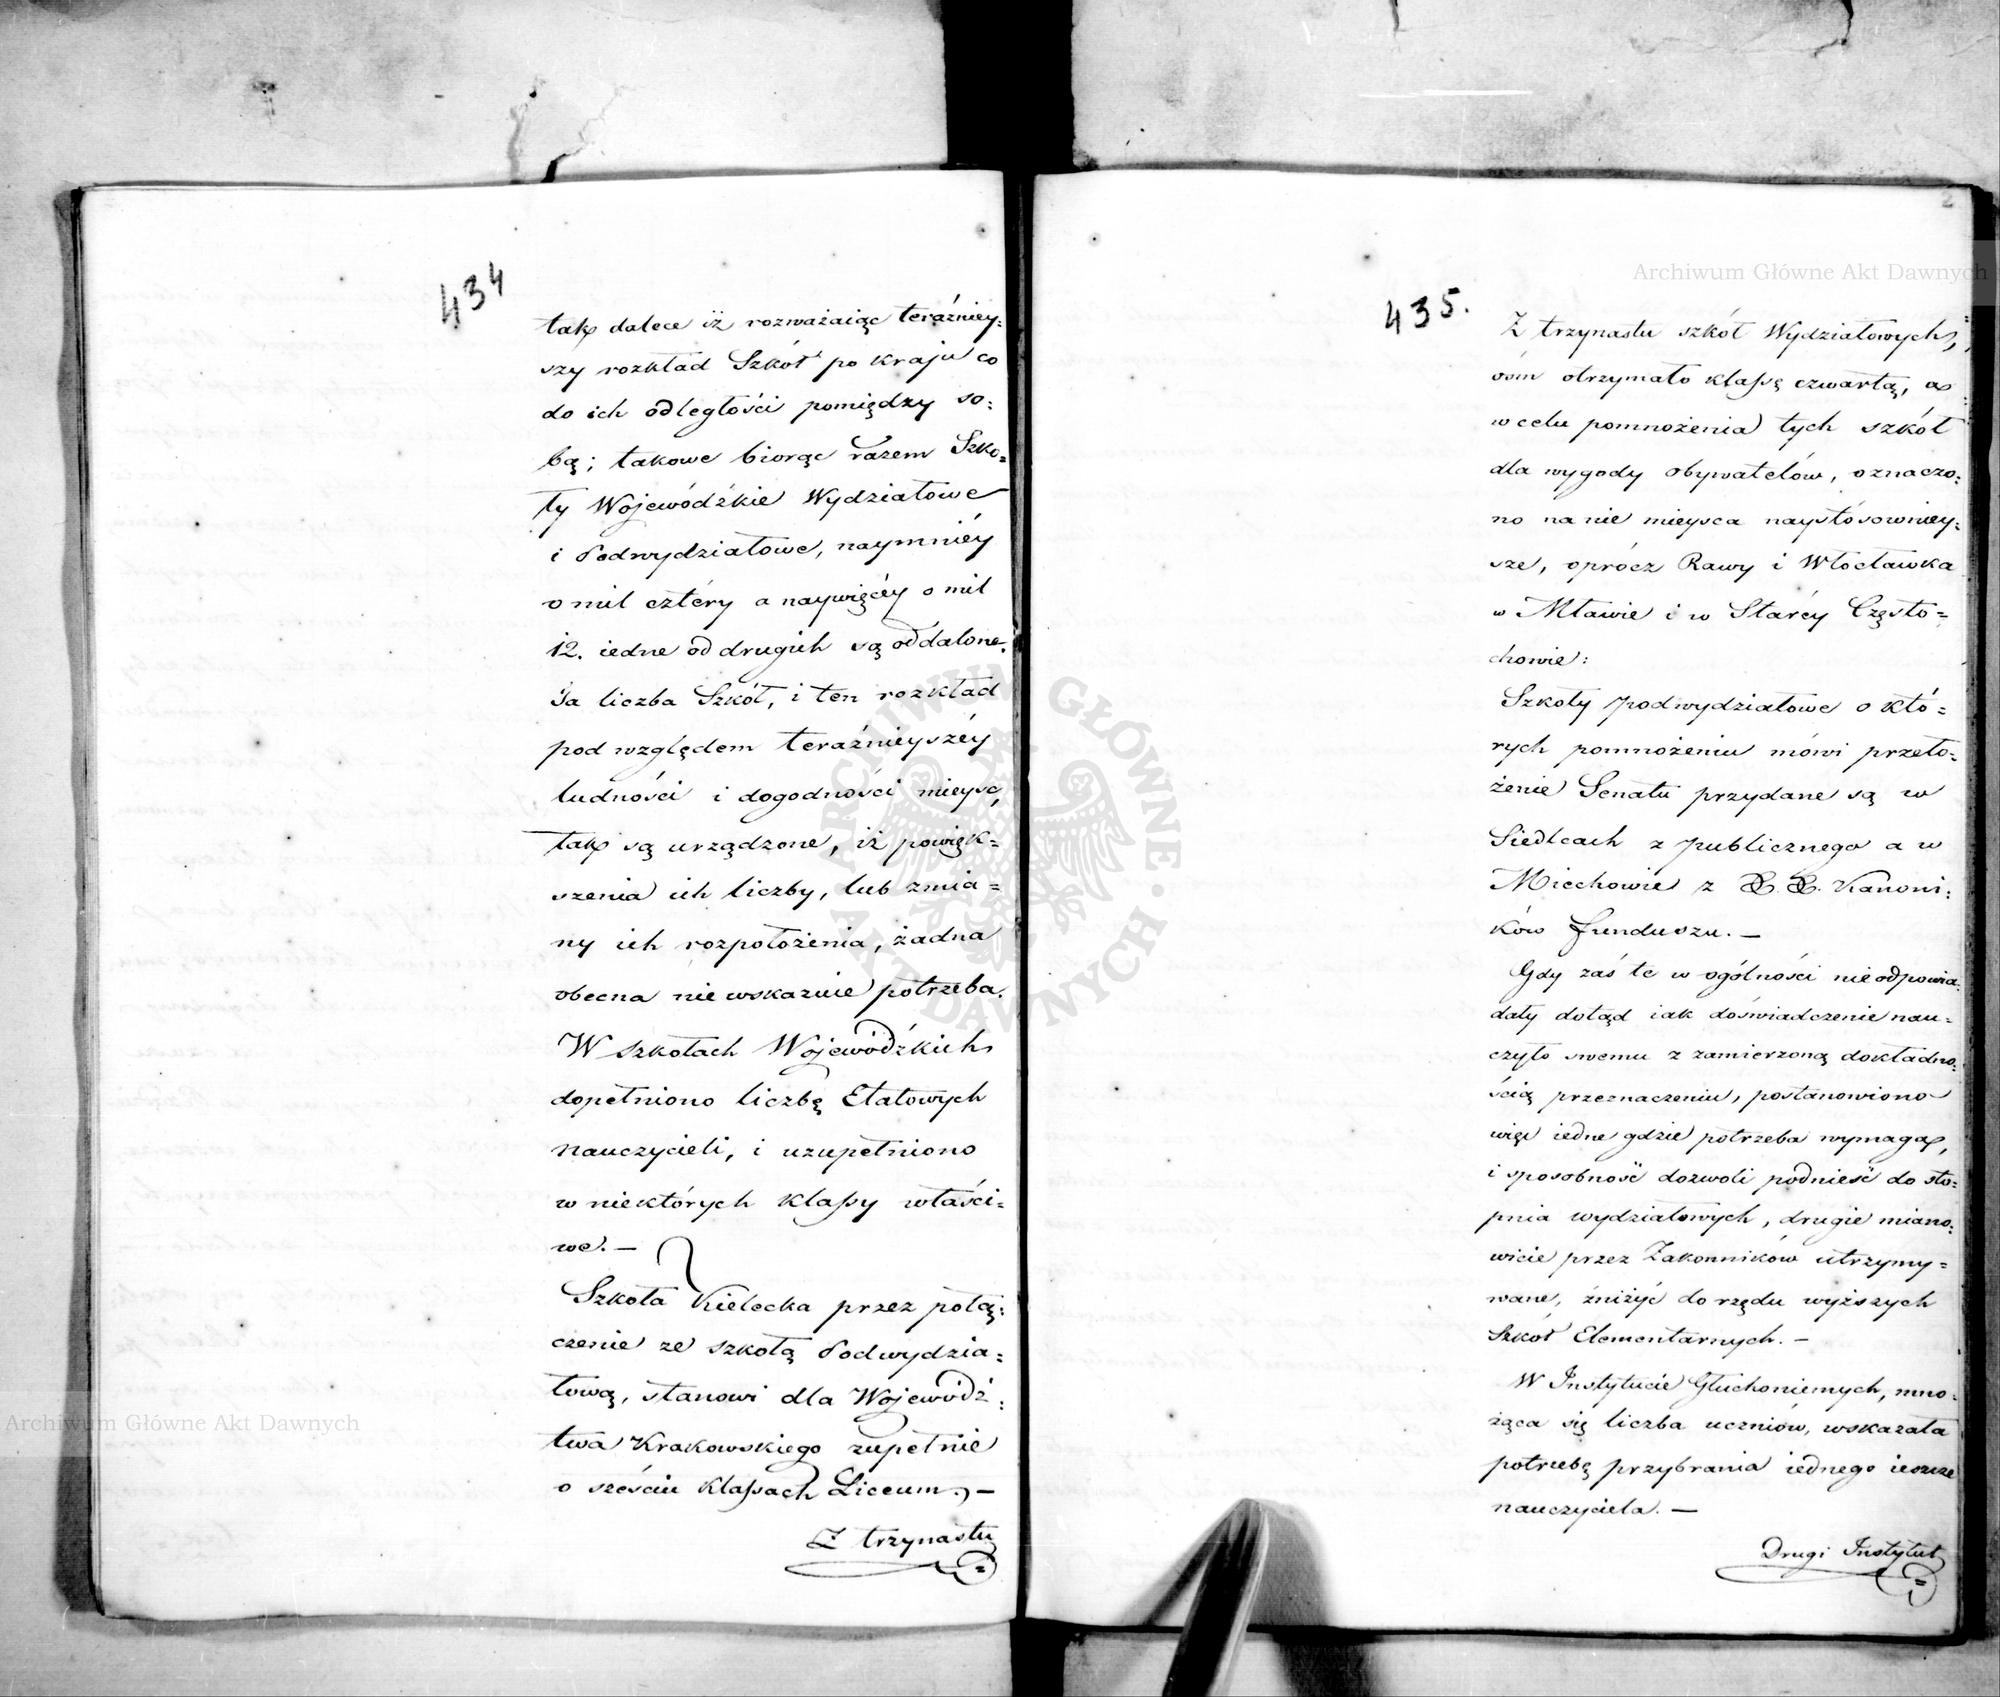 434
tak dalece iż rozważaiąc teraźniey:
szy rozkład Szkół po kraju co
do ich odległości pomiędzy so:
bą; takowe biorąc razem Szko=
ły Wojewódźkie Wydziałowe
i Podwydziałowe, naymniéy
o mil cztéry a naywięcéy o mil
12. iedne od drugich są oddalone.
Ta liczba Szkół, i ten rozkład
pod względem teraźnieyszéy
ludności i dogodności mieysc,
tak są urządzone, iż powięk=
szenia ich liczby, lub zmia=
ny ich rozpołożenia, żadna
obecna nie wskazuie potrzeba.
W szkołach Wojewódźkich
dopełniono liczbę Etatowych
nauczycieli, i uzupełniono
w niektórych klassy właści=
we. —
Szkoła Kielecka przez połą:
czenie ze szkołą Podwydzia=
łową, stanowi dla Wojewódź:
twa Krakowskiego zupełnie
o sześciu klassach Liceum. —
Z trzynastu
2
Archiwum Główne Akt Dawnych
435.
Z trzynastu szkół Wydziałowych,
ośm otrzymało klassę czwartą, a
w celu pomnożenia tych szkół
dla wygody obywatelów, oznaczo:
no na nie mieysca naystósowniey:
sze, oprócz Rawy i Włocławka
w Mławie i w Staréy Często=
chowie:
Szkoły podwydziałowe o któ=
rych pomnożeniu mówi przeło=
żenie Senatu przydane są w
Siedlcach z publicznego a w
Miechowie z XX. Kanoni:
ków funduszu. —
Gdy zaś te w ogólności nieodpowia:
dały dotąd iak doświadczenie nau=
czyło swemu z zamierzoną dokładno:
ścią przeznaczeniu, postanowiono
więc iedne gdzie potrzeba wymaga,
i sposobność dozwoli podnieść do sto=
pnia wydziałowych, drugie miano:
wicie przez Zakonników utrzymy=
wane, zniżyć do rzędu wyższych
Szkół Elementarnych. —
W Instytucie Głuchoniemych, mno:
żąca się liczba uczniów, wskazała
potrzebę przybrania iednego ieszcze
nauczyciela. —
Drugi Instytut
Archiwum Główne Akt Dawnych
ARCHIWUM GŁÓWNE AKT DAWNYCH